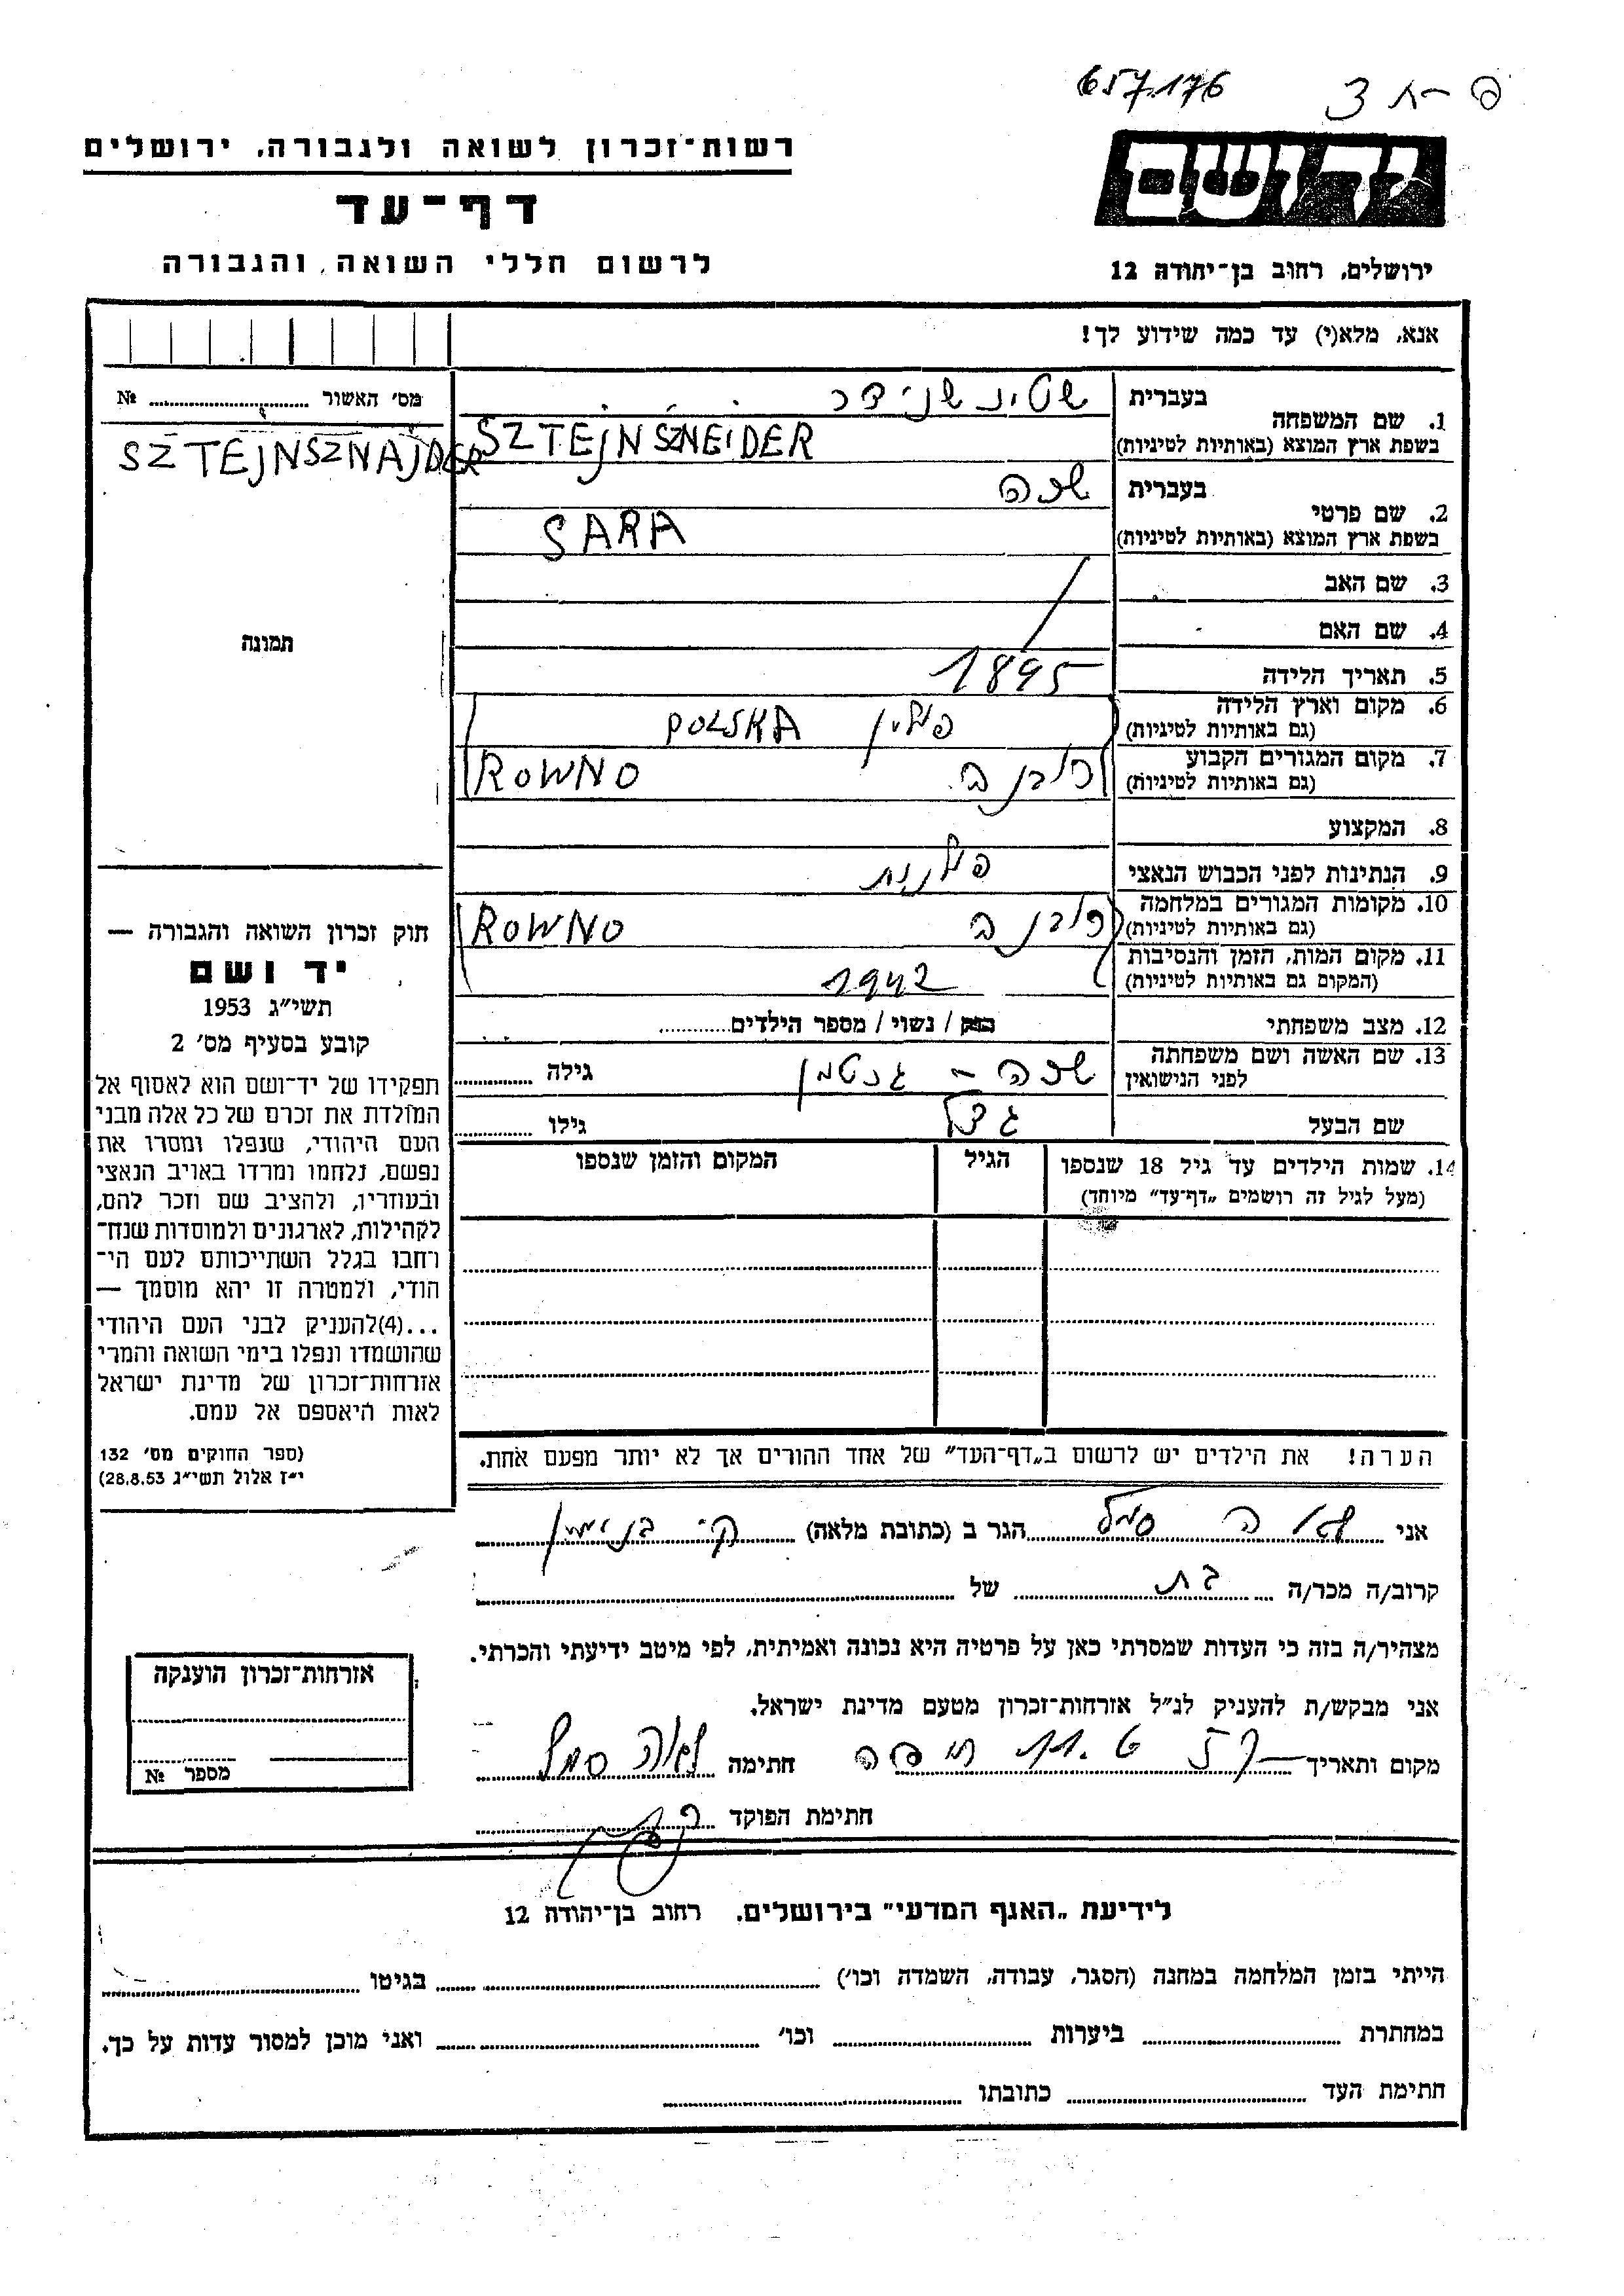 657.176
רשות־זכרון לשואה ולגבורה, ירושלים
דף־עד
לרשום חללי השואה והגבורה
ידושם
ירושלים, רחוב בן־יהודה 12
אנא, מלא(י) עד כמה שידוע לך!
מס׳ האשור № ........
1. שם המשפחה
בעברית שטינשנידר
בשפת ארץ המוצא (באותיות לטיניות) SZTEJNSZNEIDER
SZTEJNSZNAJDER
2. שם פרטי
בעברית שרה
בשפת ארץ המוצא (באותיות לטיניות) SARA
3. שם האב
4. שם האם
תמונה
5. תאריך הלידה 1895
6. מקום וארץ הלידה (גם באותיות לטיניות) פולין POLSKA
7. מקום המגורים הקבוע (גם באותיות לטיניות) רובנה ROWNO
8. המקצוע
9. הנתינות לפני הכבוש הנאצי פולנית
10. מקומות המגורים במלחמה (גם באותיות לטיניות) רובנה ROWNO
11. מקום המות, הזמן והנסיבות (המקום גם באותיות לטיניות) 1942
12. מצב משפחתי רווק / נשוי / מספר הילדים........
13. שם האשה ושם משפחתה לפני הנישואין שרה - גנטמן גילה ........
שם הבעל גילו ........
14. שמות הילדים עד גיל 18 שנספו
(מעל לגיל זה רושמים „דף־עד״ מיוחד)
הגיל
המקום והזמן שנספו
חוק זכרון השואה והגבורה —
יד ושם
תשי״ג 1953
קובע בסעיף מס׳ 2
תפקידו של יד־ושם הוא לאסוף אל
המולדת את זכרם של כל אלה מבני
העם היהודי, שנפלו ומסרו את
נפשם, נלחמו ומרדו באויב הנאצי
ובעוזריו, ולהציב שם וזכר להם,
לקהילות, לארגונים ולמוסדות שנח־
רחבו בגלל השתייכותם לעם הי־
הודי, ולמטרה זו יהא מוסמך —
...(4)להעניק לבני העם היהודי
שהושמדו ונפלו בימי השואה והמרי
אזרחות־זכרון של מדינת ישראל
לאות היאספם אל עמם.
(ספר החוקים מס׳ 132
י״ז אלול תשי״ג 28.8.53)
הערה! את הילדים יש לרשום ב„דף־העד״ של אחד ההורים אך לא יותר מפעם אחת.
אני לאה סמל הגר ב (כתובת מלאה) ק. בנימין
קרוב/ה מכר/ה בת של ........
מצהיר/ה בזה כי העדות שמסרתי כאן על פרטיה היא נכונה ואמיתית, לפי מיטב ידיעתי והכרתי.
אני מבקש/ת להעניק לנ״ל אזרחות־זכרון מטעם מדינת ישראל.
מקום ותאריך חיפה חתימה לאה סמל
חתימת הפוקד
אזרחות־זכרון הוענקה
מספר №
לידיעת „האגף המדעי״ בירושלים, רחוב בן־יהודה 12
הייתי בזמן המלחמה במחנה (הסגר, עבודה, השמדה וכו׳) ........ בגיטו ........
במחתרת ........ ביערות ........ וכו׳ ........ ואני מוכן למסור עדות על כך.
חתימת העד ........ כתובתו ........